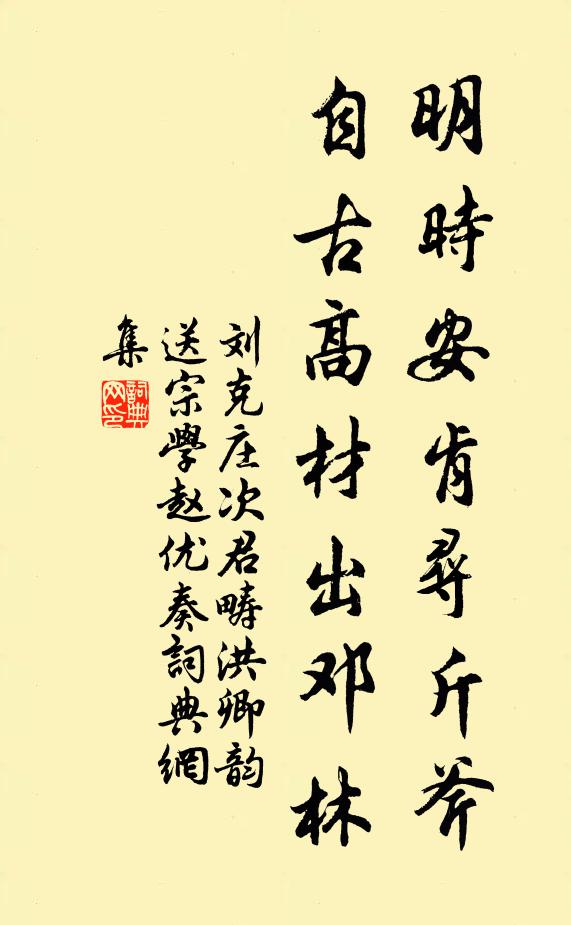 明時安肯尋斤斧
自古高材出邓林
刘克庄次君畴洪卿韵
送宗學赵优奏詞典網
集
詞典
网印